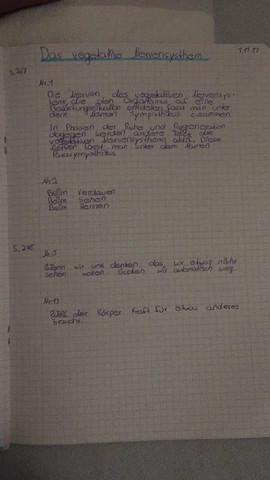 Das vegetative Nervensystem
S.267
Nr.1
Die Nerven des vegetativen Nervensys-
tems die den Organismus auf eine
Belastungssituation einstellen fasst man unter
dem Namen Sympathikus zusammen.
In Phasen der Ruhe und Regeneration
dagegen werden andere Teile des
vegetativen Nervensystems aktiv. Diese
Nerven fasst man unter dem Namen
Parasympathikus
Nr.2
Beim Verdauen
Beim Sehen
Beim Rennen
Wenn wir uns denken, das wir etwas nicht
sehen wollen. Gucken wir automatisch weg.
der Körper Kraft für etwas anderes
braucht.